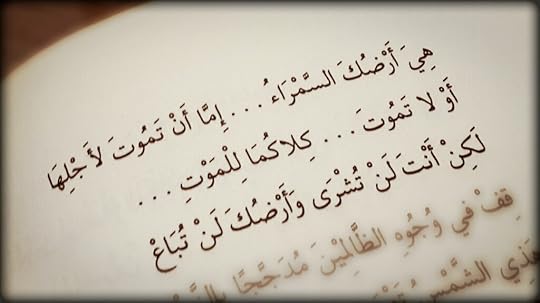 هِيَ أَرْضُكَ السَّمْرَاءُ... إِمَّا أَنْ تَمُوتَ لأَجْلِهَا
أَوْ لا تَمُوتَ... كِلاكُمَا لِلْمَوْتِ...
لَكِنْ أَنْتَ لَنْ تُشْرَى وَأَرْضُكَ لَنْ تُبَاعْ
قِفْ في وُجُوهِ الظَّالِمِيْنَ مُدَجَّجًا
هَذِي الشَّمْسُ